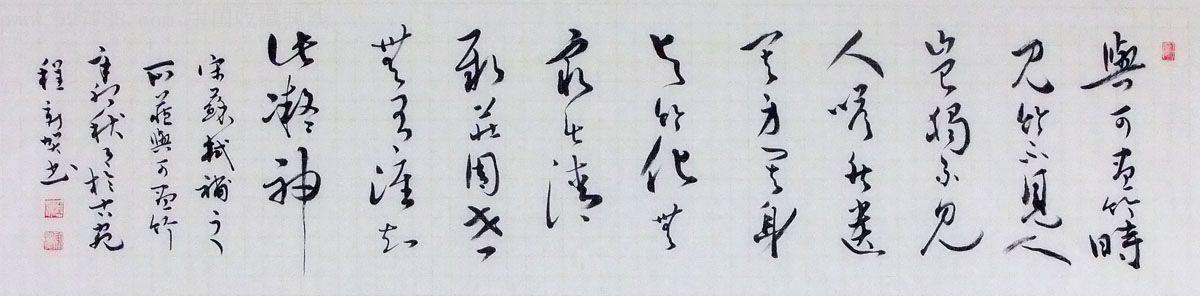 www.997788.com 中国收藏热线
與可画竹時
見竹不見人
豈獨不見
人嗒然遺
其身其身
與竹化無
窮出清
新莊周世
無有誰知
此凝神
宋蘇軾補之
所藏與可画竹
辛卯秋月於古
程新书